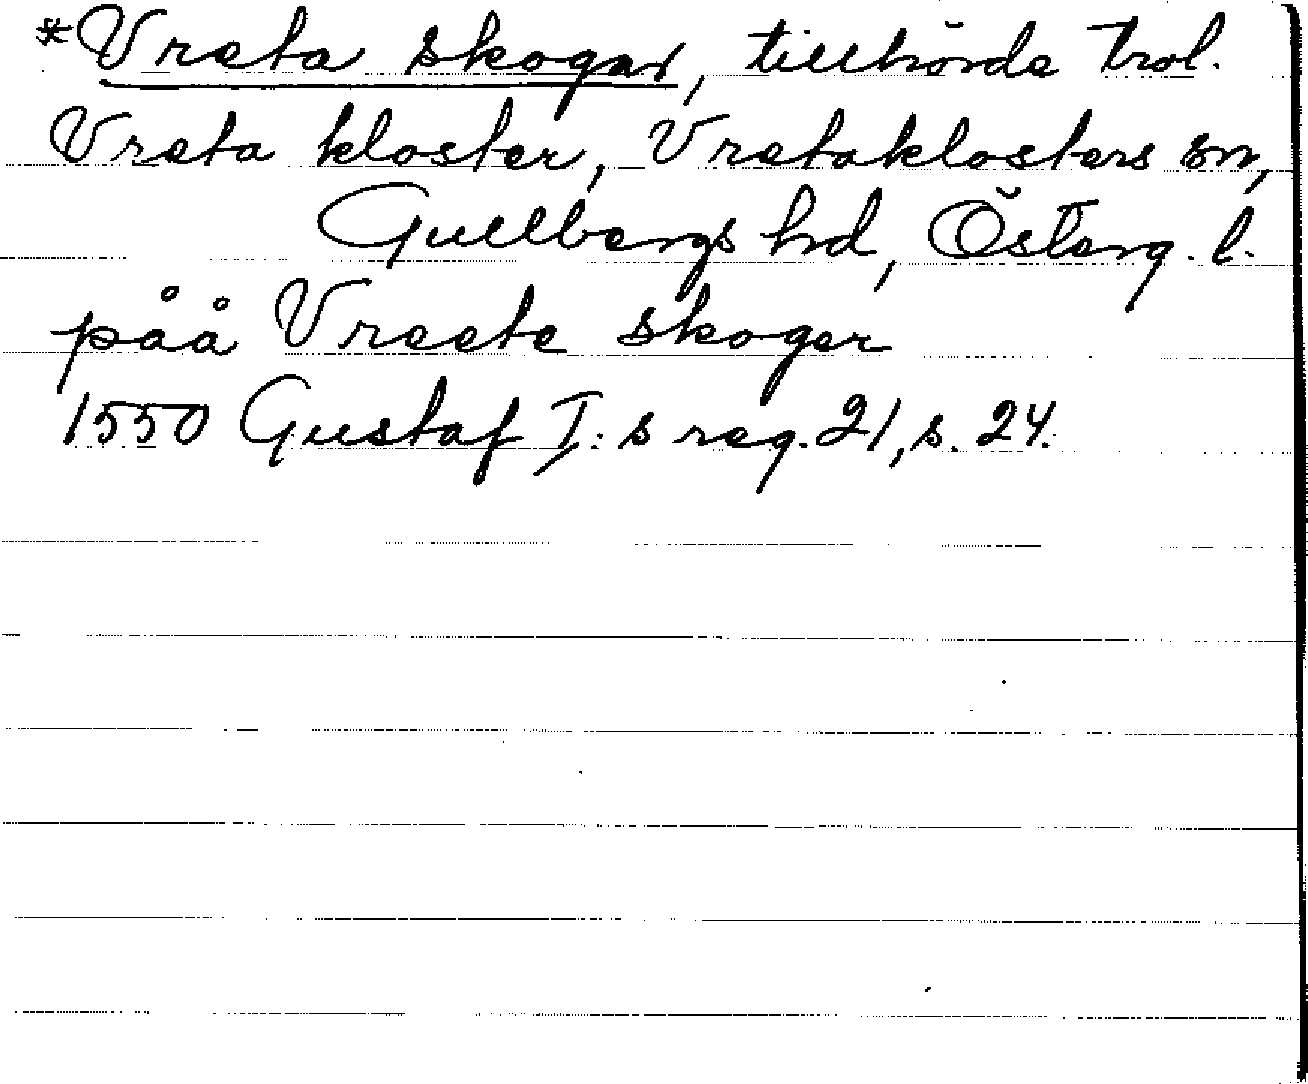 *Vreta skogar, tillhörde trol.
Vreta kloster, Vretaklosters sn,
Gullbergs hd, Österg. l.
påå Vreete skoger
1550 Gustaf I:s reg. 21, s. 24.